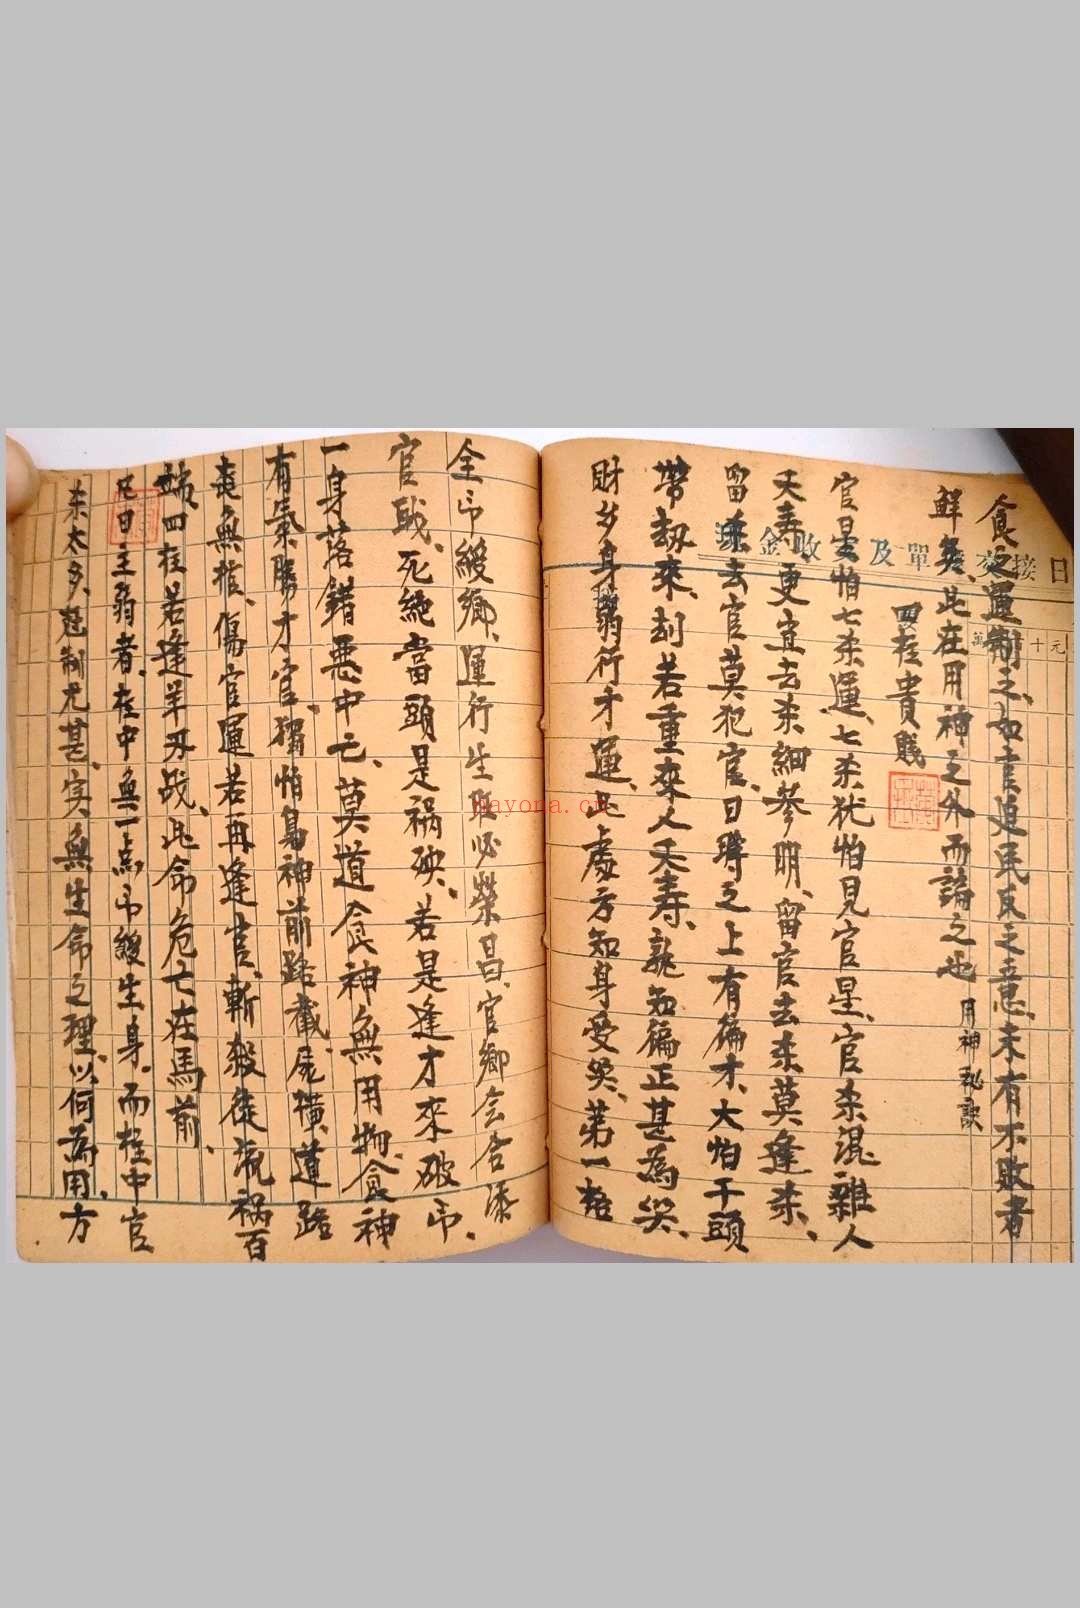 食之運制之、如官追民哀之意、未有不敗者
鮮矣、此在用神之外而論之也 用神秘訣
四柱貴賤
官星怕七杀運、七杀犹怕見官星、官杀混雜人
夭寿、更宜去杀細參明、留官去杀莫逢杀、
留杀去官莫犯官、日時之上有偏才、大怕干頭
帶刼來、刦若重來人夭寿、孰知偏正甚為災、
財多身弱行才運、此處方知身受災、第一格
全印綬鄉、運行生旺必榮昌、官鄉会合添
官職、死絶當頭是祸殃、若是逢才來破印、
一身落錯惡中亡、莫道食神無用物、食神
有氣勝才官、獨怕梟神前路截、屍横道路
喪無棺、傷官運若再逢官、斬殺徒流祸百
端、四柱若逢羊刃战、此命危亡在馬前、
凡日主弱者、柱中無一点印綬生身、而柱中官
杀太多、尅制尤甚、实無生命之理、以何為用、方
日接 單及收金
萬 十元
nayona.cn